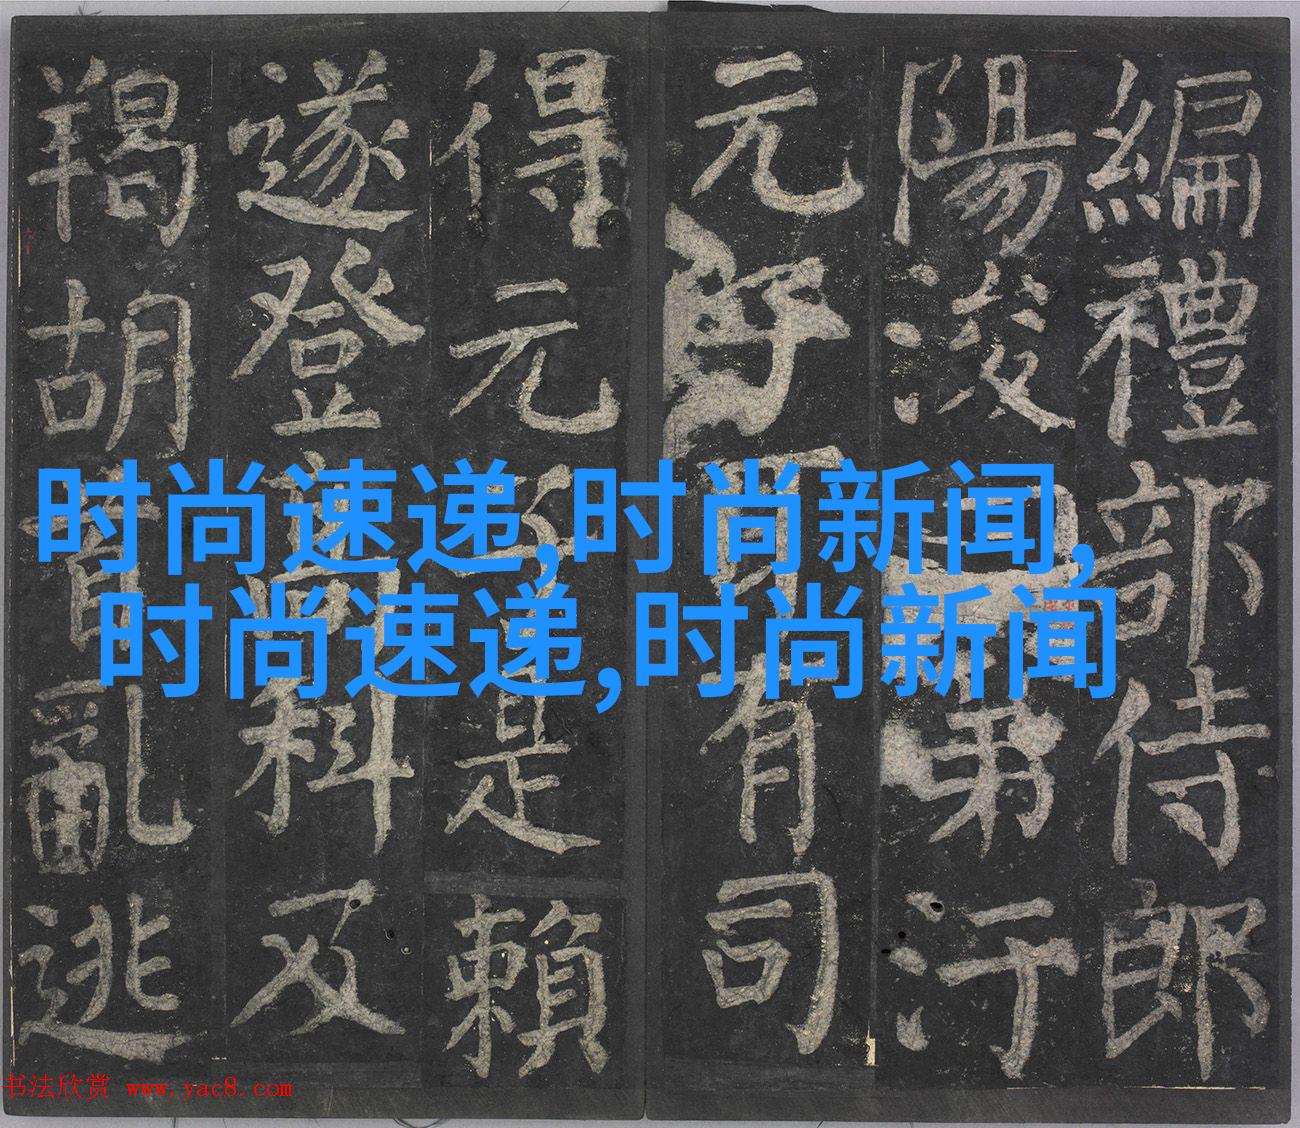 編禮部侍郎
陽浚弟汙
元子耳有司
得元子是賴
遂登高科及
羯胡首亂逃
时尚速递,时尚新闻,
时尚速递,时尚新闻
书法欣赏 www.yac8.com